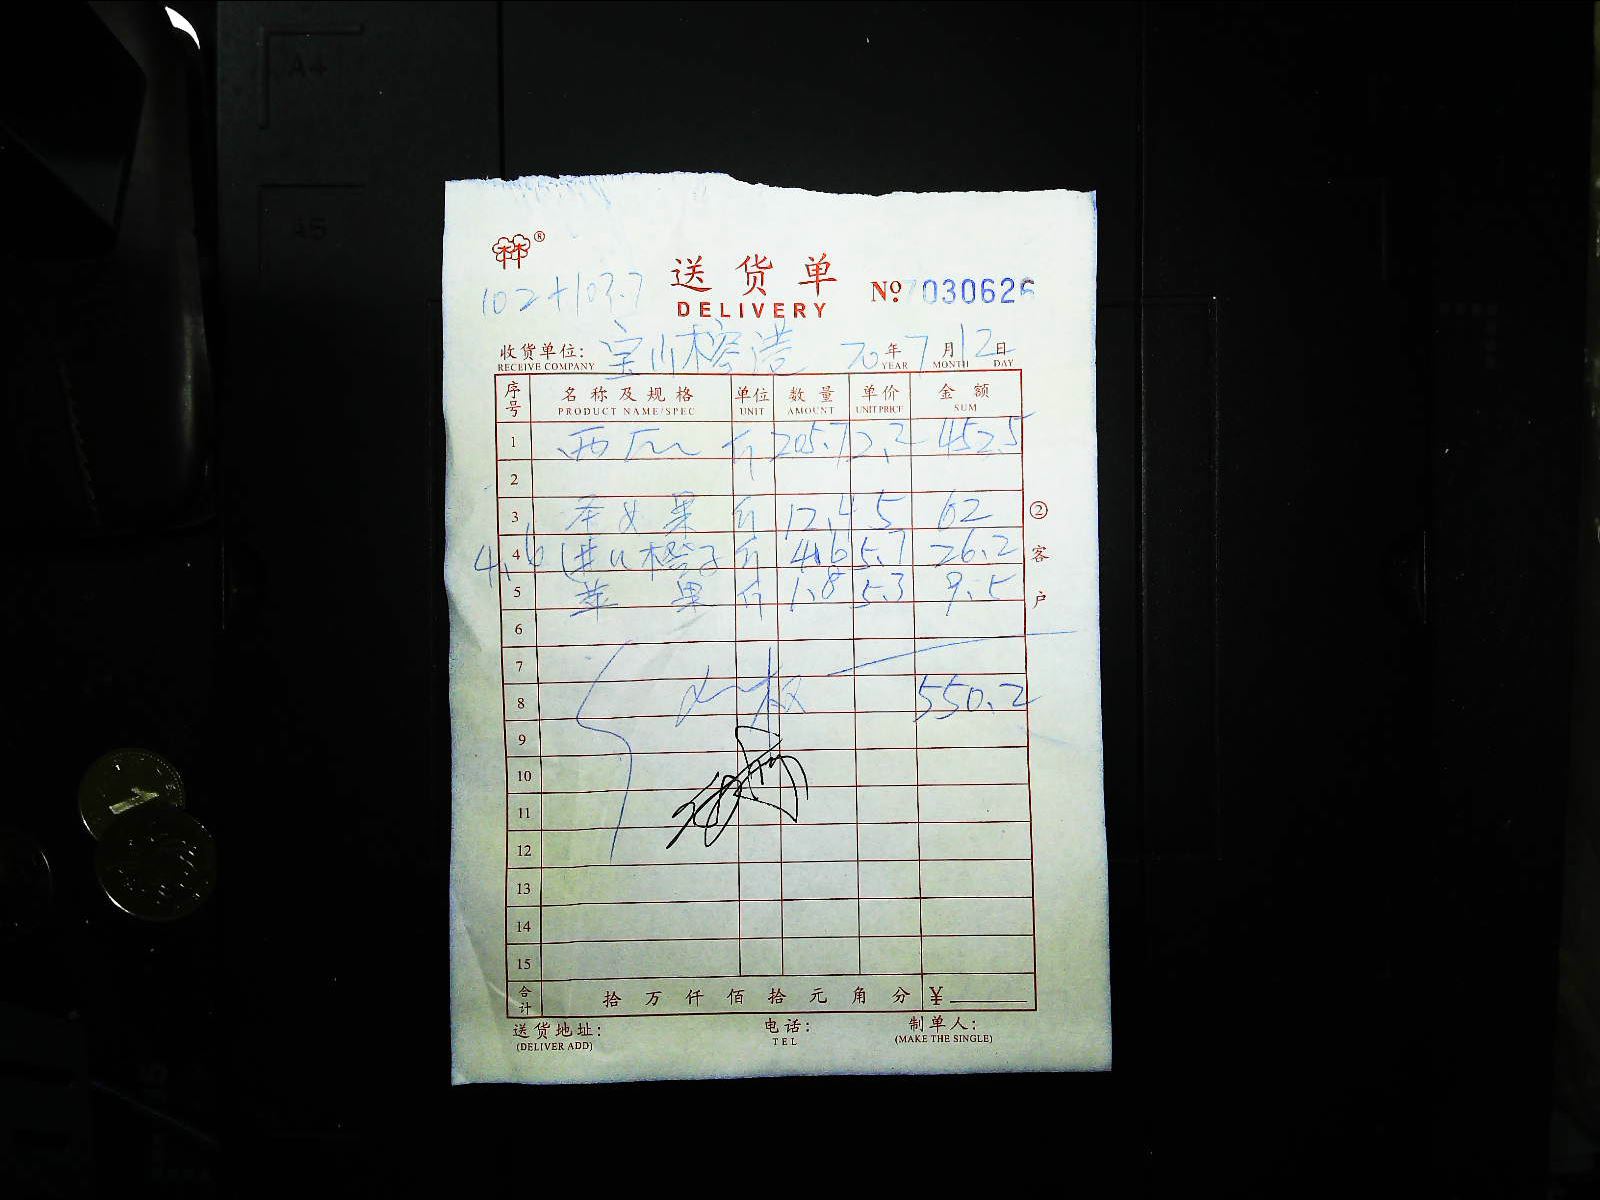 A+
A5
林®
送货单
DELIVERY
No 7030626
102+103.7
收货单位: 宝山榕浩 20年7月12日
RECEIVE COMPANY YEAR MONTH DAY
序号 名称及规格 单位 数量 单价 金额
PRODUCT NAME/SPEC UNIT AMOUNT UNIT PRICE SUM
1 西瓜 斤 205.7 2.2 452.5
2
3 圣女果 斤 12.4 5 62
4.6 4 进口橙子 斤 4.6 5.7 26.2
5 苹果 斤 1.8 5.3 9.5
6
7
8 550.2
9
10
11
12
13
14
15
合计 拾 万 仟 佰 拾 元 角 分 ¥
②客户
送货地址: 电话: 制单人:
(DELIVER ADD) TEL (MAKE THE SINGLE)